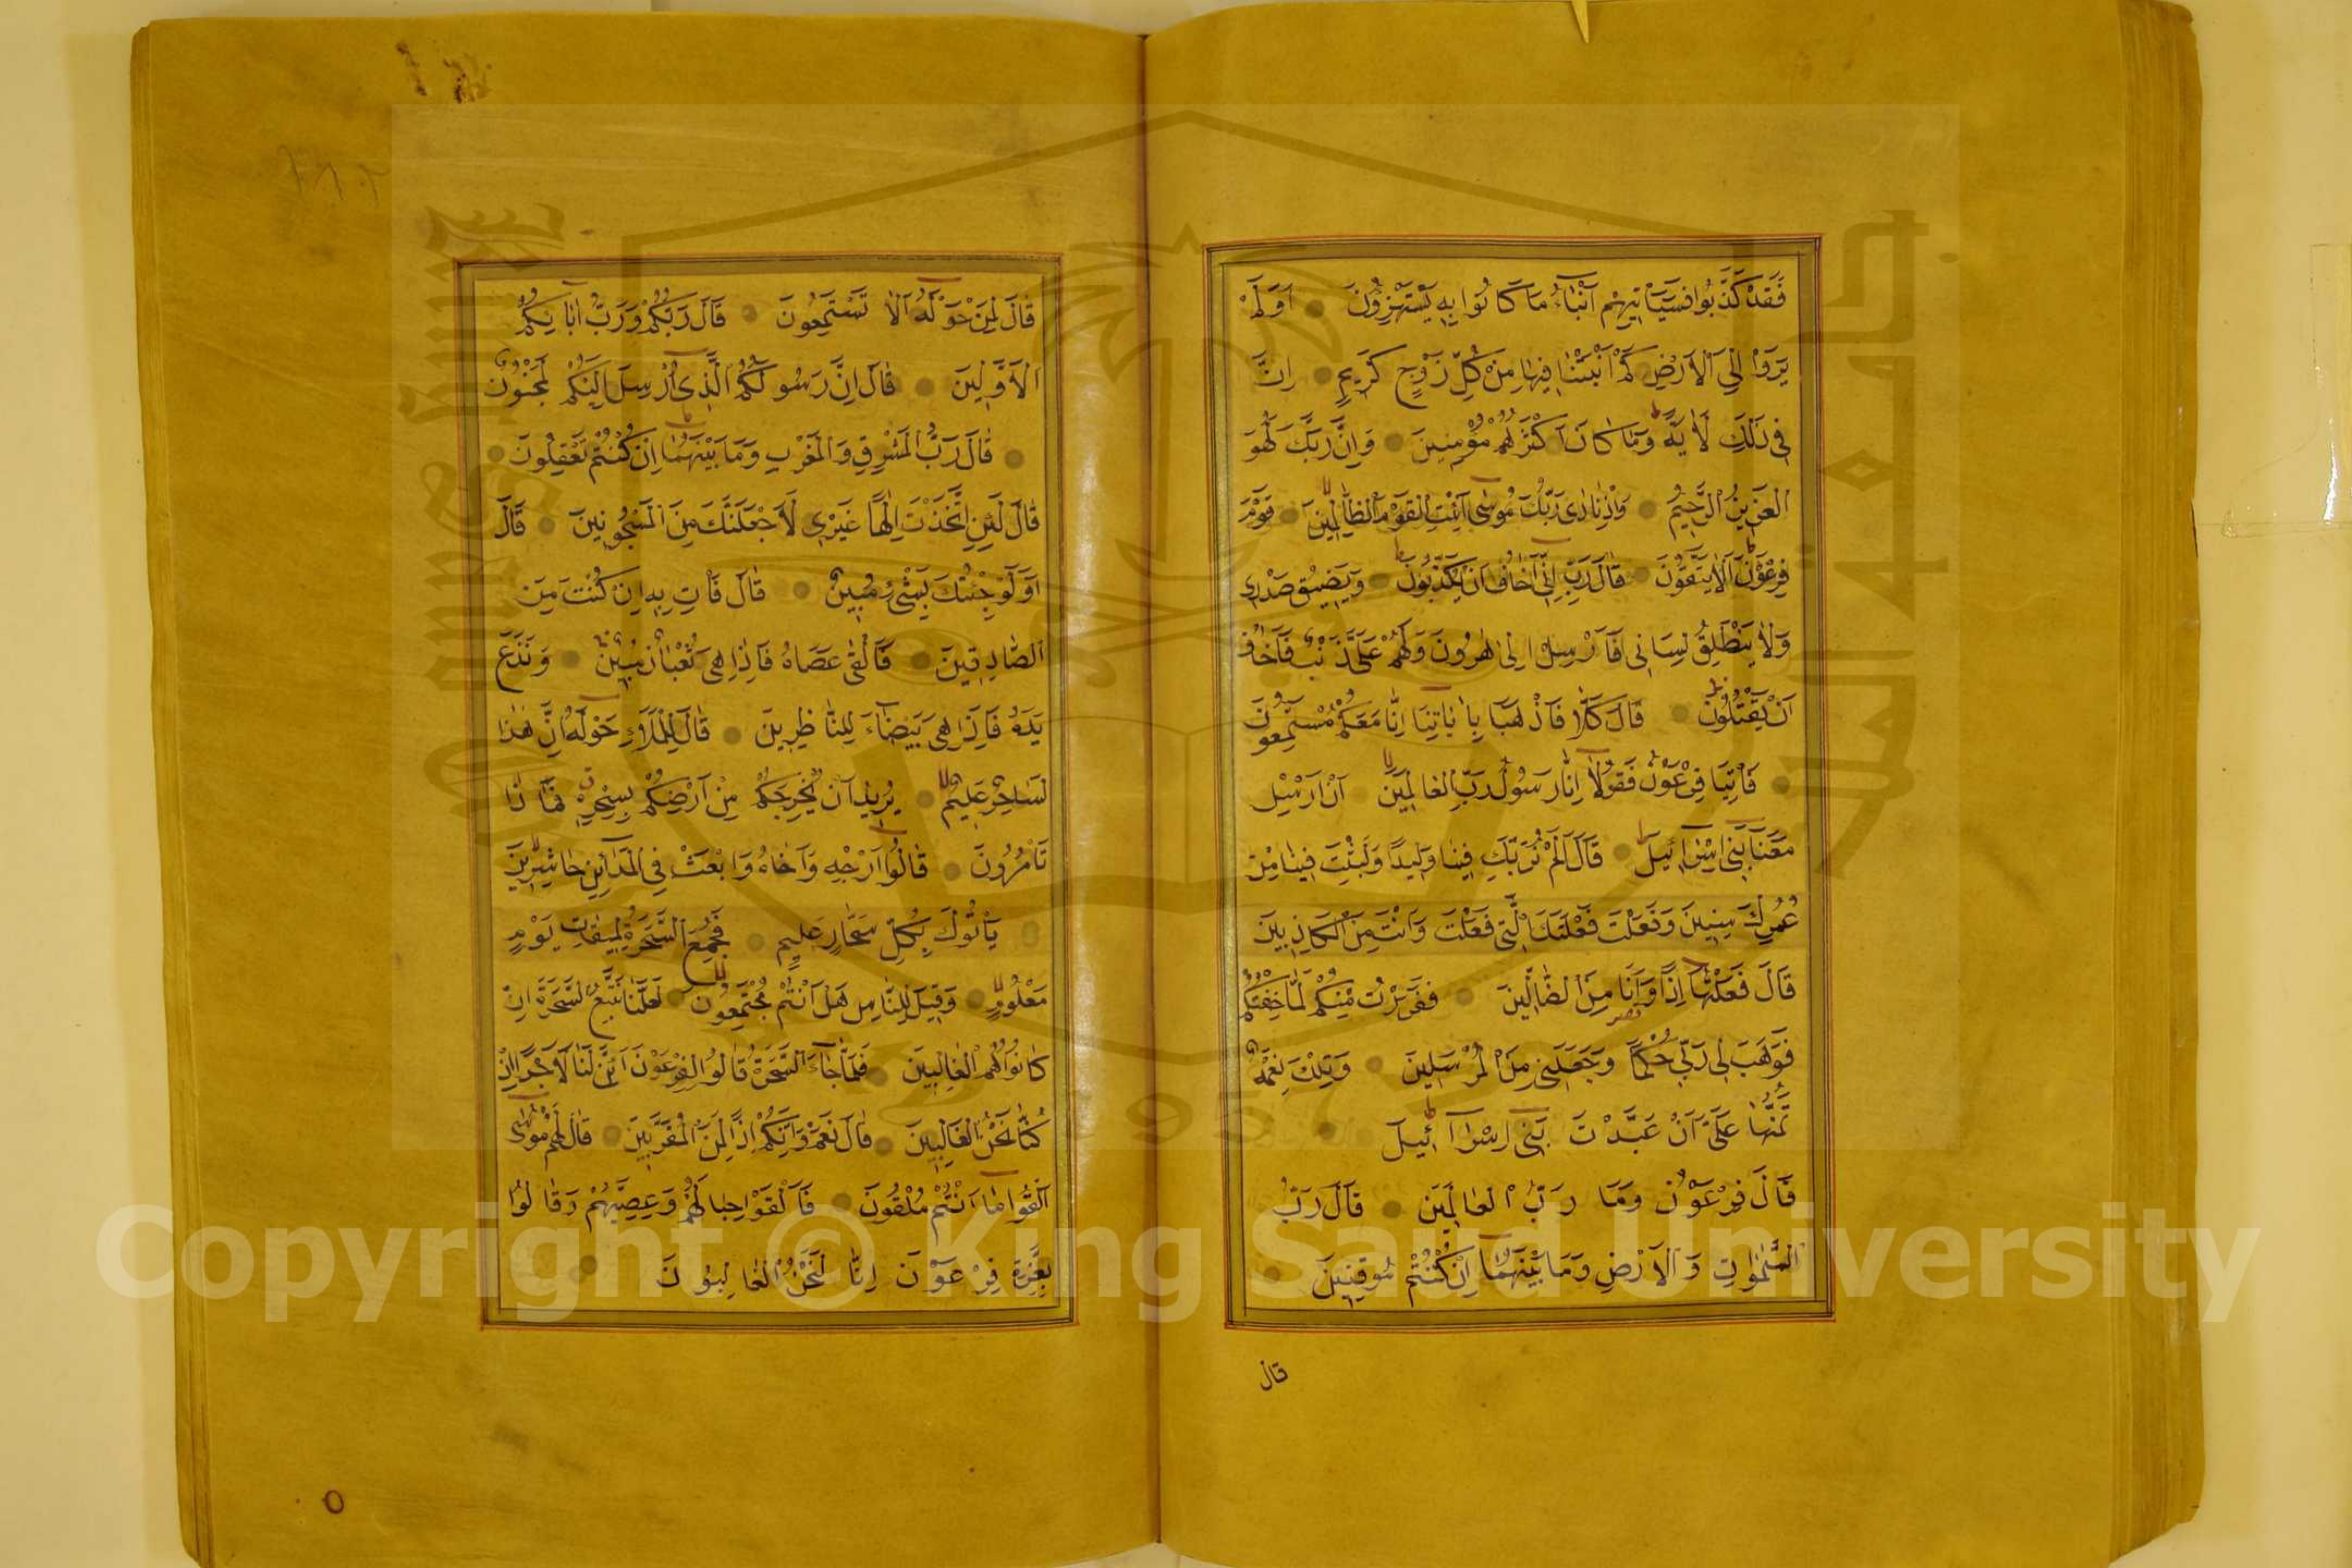 فَقَدْ كَذَّبُوا فَسَيَأْتِيهِمْ اَنْبَاءُ مَا كَانُوا بِهِ يَسْتَهْزِؤُنَ اَوَلَمْ
يَرَوْا اِلَى الْاَرْضِ كَمْ اَنْبَتْنَا فِيهَا مِنْ كُلِّ زَوْجٍ كَرِيمٍ اِنَّ
فِي ذٰلِكَ لَاٰيَةً وَمَا كَانَ اَكْثَرُهُمْ مُؤْمِنِينَ وَاِنَّ رَبَّكَ لَهُوَ
الْعَزِيزُ الرَّحِيمُ وَاِذْ نَادٰى رَبُّكَ مُوسٰى اَنِ ائْتِ الْقَوْمَ الظَّالِمِينَ قَوْمَ
فِرْعَوْنَ اَلَا يَتَّقُونَ قَالَ رَبِّ اِنِّي اَخَافُ اَنْ يُكَذِّبُونِ وَيَضِيقُ صَدْرِي
وَلَا يَنْطَلِقُ لِسَانِي فَاَرْسِلْ اِلٰى هٰرُونَ وَلَهُمْ عَلَيَّ ذَنْبٌ فَاَخَافُ
اَنْ يَقْتُلُونِ قَالَ كَلَّا فَاذْهَبَا بِاٰيَاتِنَا اِنَّا مَعَكُمْ مُسْتَمِعُونَ
فَاْتِيَا فِرْعَوْنَ فَقُولَا اِنَّا رَسُولُ رَبِّ الْعَالَمِينَ اَنْ اَرْسِلْ
مَعَنَا بَنِي اِسْرَائِيلَ قَالَ اَلَمْ نُرَبِّكَ فِينَا وَلِيدًا وَلَبِثْتَ فِينَا مِنْ
عُمُرِكَ سِنِينَ وَفَعَلْتَ فَعْلَتَكَ الَّتِي فَعَلْتَ وَاَنْتَ مِنَ الْكَافِرِينَ
قَالَ فَعَلْتُهَا اِذًا وَاَنَا مِنَ الضَّالِّينَ فَفَرَرْتُ مِنْكُمْ لَمَّا خِفْتُكُمْ
فَوَهَبَ لِي رَبِّي حُكْمًا وَجَعَلَنِي مِنَ الْمُرْسَلِينَ وَتِلْكَ نِعْمَةٌ
تَمُنُّهَا عَلَيَّ اَنْ عَبَّدْتَ بَنِي اِسْرَائِيلَ
قَالَ فِرْعَوْنُ وَمَا رَبُّ الْعَالَمِينَ قَالَ رَبُّ
السَّمٰوَاتِ وَالْاَرْضِ وَمَا بَيْنَهُمَا اِنْ كُنْتُمْ مُوقِنِينَ
قال
قَالَ لِمَنْ حَوْلَهُ اَلَا تَسْتَمِعُونَ قَالَ رَبُّكُمْ وَرَبُّ اٰبَائِكُمُ
الْاَوَّلِينَ قَالَ اِنَّ رَسُولَكُمُ الَّذِي اُرْسِلَ اِلَيْكُمْ لَمَجْنُونٌ
قَالَ رَبُّ الْمَشْرِقِ وَالْمَغْرِبِ وَمَا بَيْنَهُمَا اِنْ كُنْتُمْ تَعْقِلُونَ
قَالَ لَئِنِ اتَّخَذْتَ اِلٰهًا غَيْرِي لَاَجْعَلَنَّكَ مِنَ الْمَسْجُونِينَ قَالَ
اَوَلَوْ جِئْتُكَ بِشَيْءٍ مُبِينٍ قَالَ فَاْتِ بِهِ اِنْ كُنْتَ مِنَ
الصَّادِقِينَ فَاَلْقٰى عَصَاهُ فَاِذَا هِيَ ثُعْبَانٌ مُبِينٌ وَنَزَعَ
يَدَهُ فَاِذَا هِيَ بَيْضَاءُ لِلنَّاظِرِينَ قَالَ لِلْمَلَاِ حَوْلَهُ اِنَّ هٰذَا
لَسَاحِرٌ عَلِيمٌ يُرِيدُ اَنْ يُخْرِجَكُمْ مِنْ اَرْضِكُمْ بِسِحْرِهِ فَمَاذَا
تَاْمُرُونَ قَالُوا اَرْجِهْ وَاَخَاهُ وَابْعَثْ فِي الْمَدَائِنِ حَاشِرِينَ
يَاْتُوكَ بِكُلِّ سَحَّارٍ عَلِيمٍ فَجُمِعَ السَّحَرَةُ لِمِيقَاتِ يَوْمٍ
مَعْلُومٍ وَقِيلَ لِلنَّاسِ هَلْ اَنْتُمْ مُجْتَمِعُونَ لَعَلَّنَا نَتَّبِعُ السَّحَرَةَ اِنْ
كَانُوا هُمُ الْغَالِبِينَ فَلَمَّا جَاءَ السَّحَرَةُ قَالُوا لِفِرْعَوْنَ اَئِنَّ لَنَا لَاَجْرًا اِنْ
كُنَّا نَحْنُ الْغَالِبِينَ قَالَ نَعَمْ وَاِنَّكُمْ اِذًا لَمِنَ الْمُقَرَّبِينَ قَالَ لَهُمْ مُوسٰى
اَلْقُوا مَا اَنْتُمْ مُلْقُونَ فَاَلْقَوْا حِبَالَهُمْ وَعِصِيَّهُمْ وَقَالُوا
بِعِزَّةِ فِرْعَوْنَ اِنَّا لَنَحْنُ الْغَالِبُونَ
Copyright © King Saud University